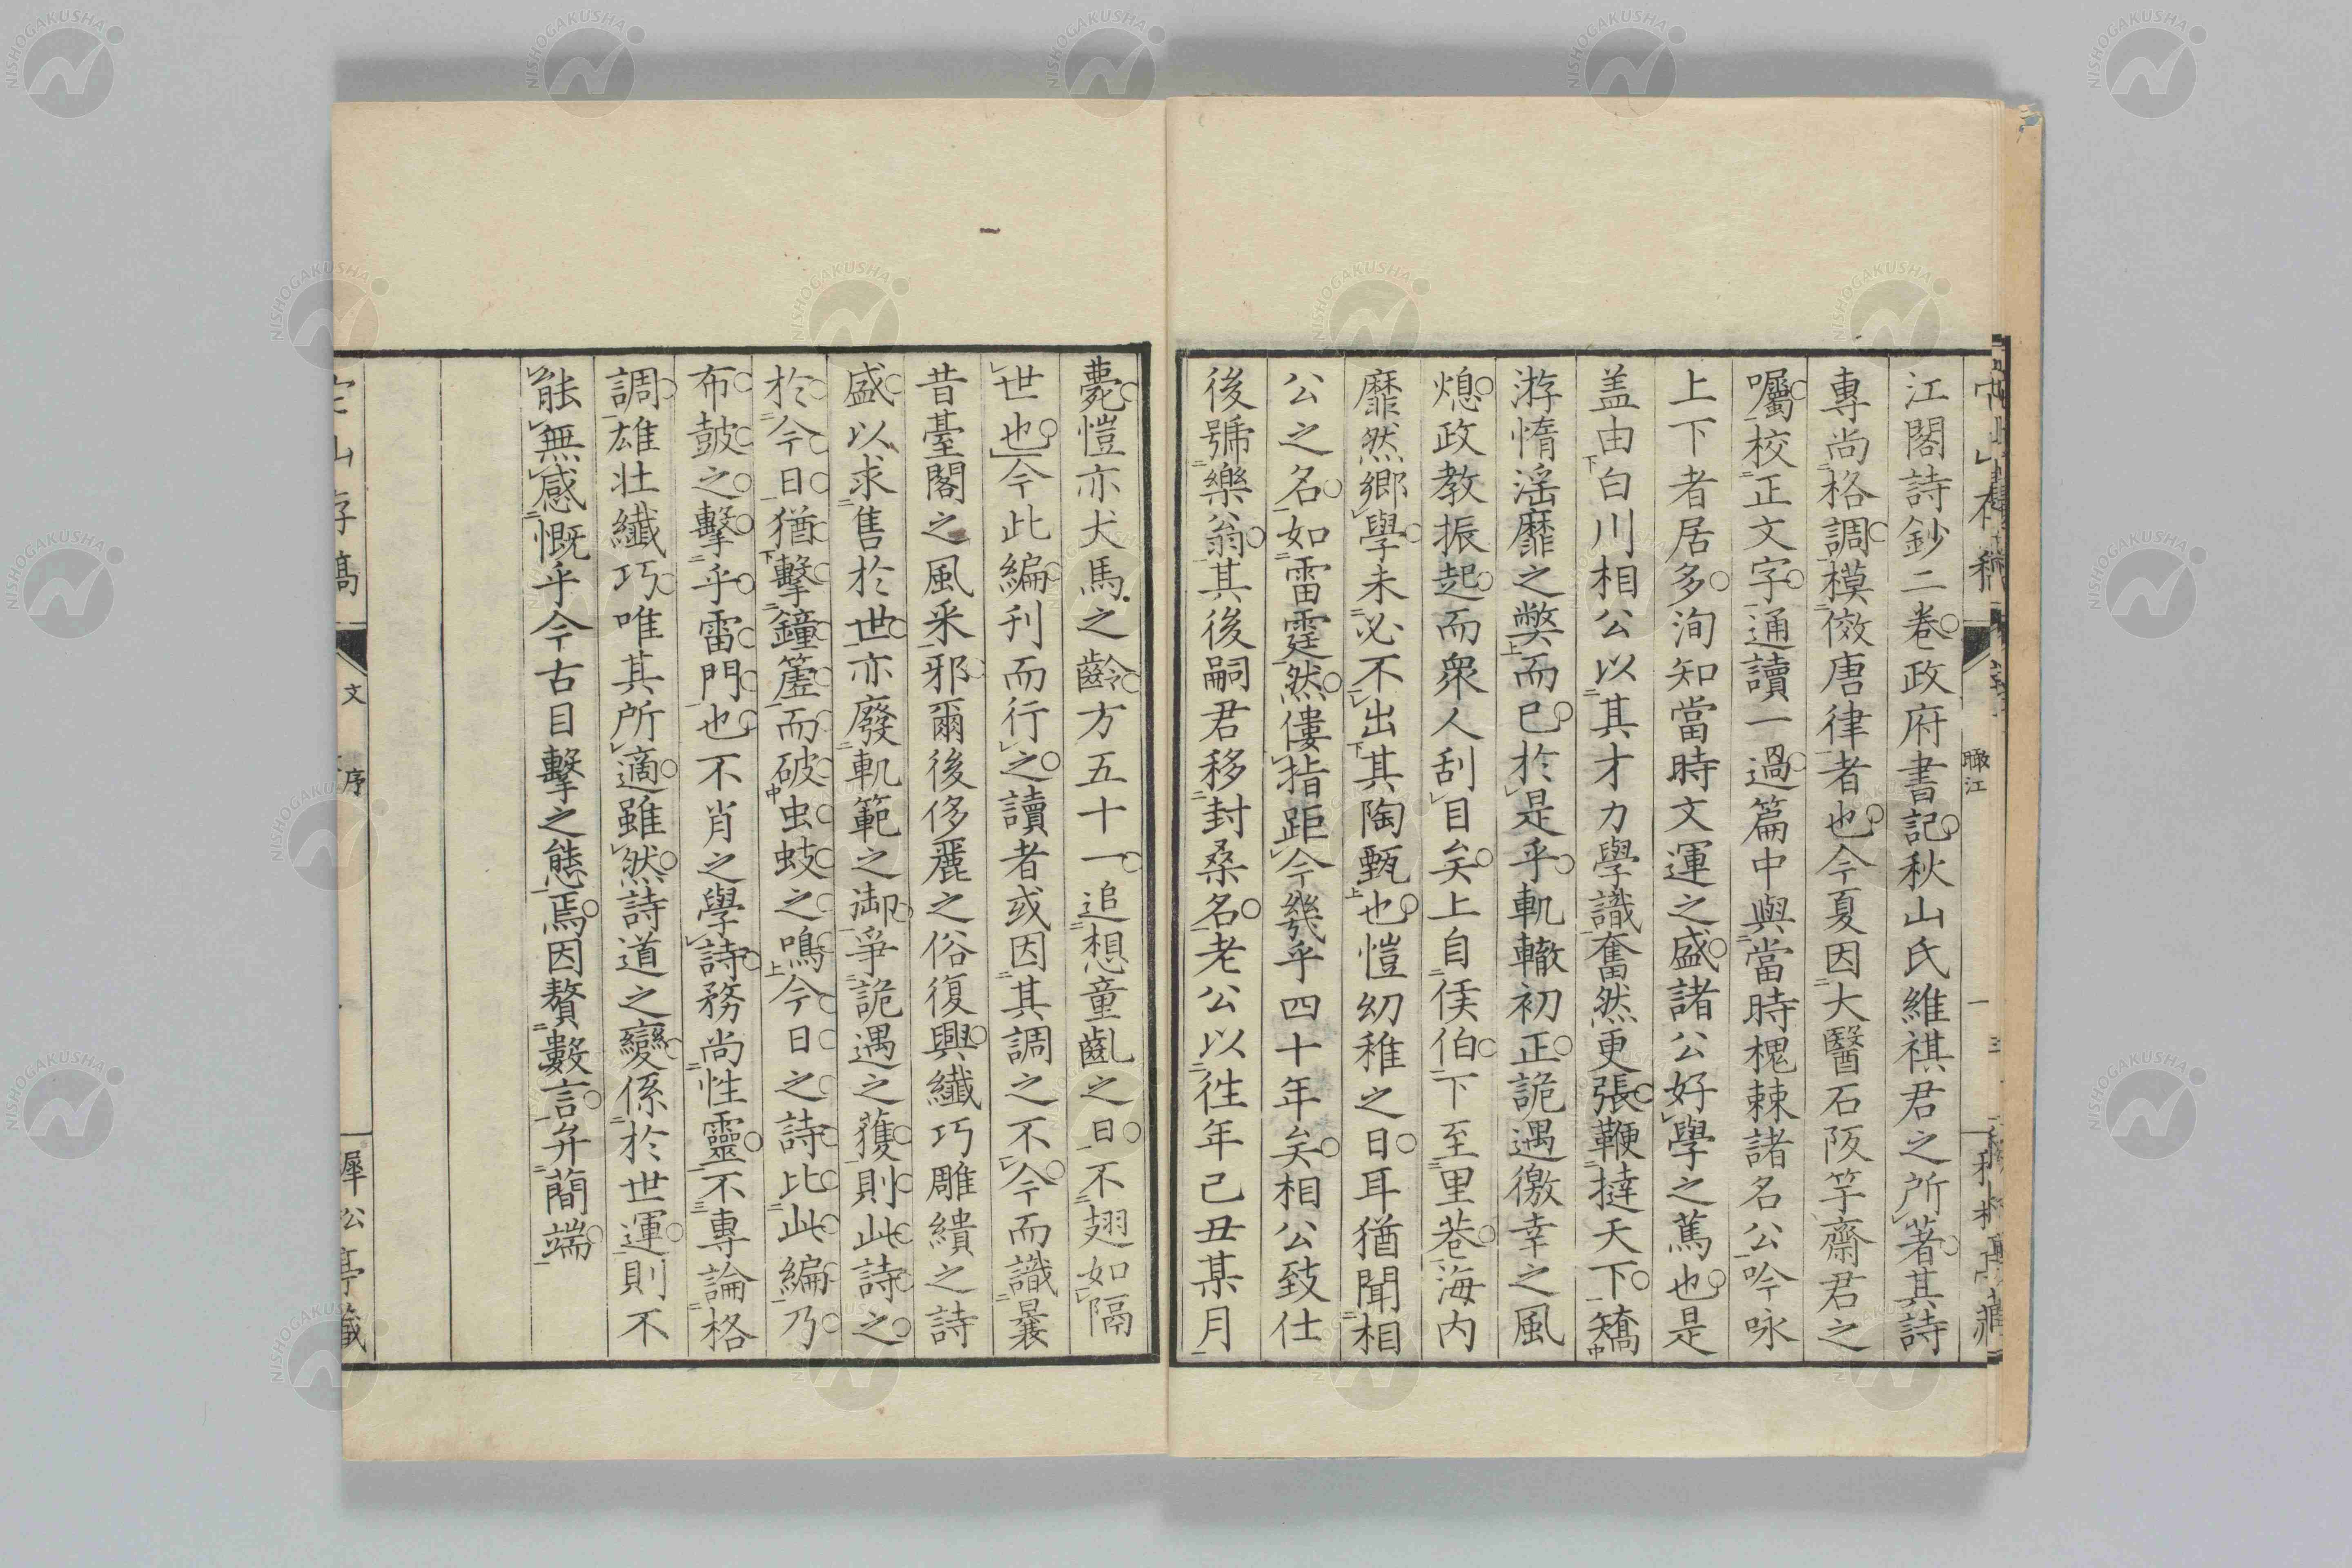 江閣詩鈔二卷政府書記秋山氏維祺君之所著其詩
專尚格調模傚唐律者也今夏因大醫石阪竽齋君之
囑校正文字通讀一過篇中與當時槐棘諸名公吟咏
上下者居多洵知當時文運之盛諸公好學之篤也是
盖由白川相公以其才力學識奮然更張鞭撻天下矯
游惰滛靡之弊而已於是乎軌轍初正詭遇徼幸之風
熄政教振起而衆人刮目矣上自侯伯下至里巷海内
靡然鄉學未必不出其陶甄也愷幼稚之日耳猶聞相
公之名如雷霆然僂指距今幾乎四十年矣相公致仕
後號樂翁其後嗣君移封桑名老公以徃年己丑某月
薨愷亦犬馬之齡方五十一追想童齔之日不翅如隔
世也今此編刊而行之讀者或因其調之不今而識曩
昔臺閣之風采邪爾後侈麗之俗復興纖巧雕繢之詩
盛以求售於世亦廢軌範之御爭詭遇之獲則此詩之
於今日猶擊鐘簴而破虫蚑之鳴今日之詩比此編乃
布鼓之擊乎雷門也不肖之學詩務尚性靈不專論格
調雄壯纖巧唯其所適雖然詩道之變係於世運則不
能無感慨乎今古目擊之態焉因贅數言弁簡端
山存稿
文
序
犀公亭藏
NISHOGAKUSHA